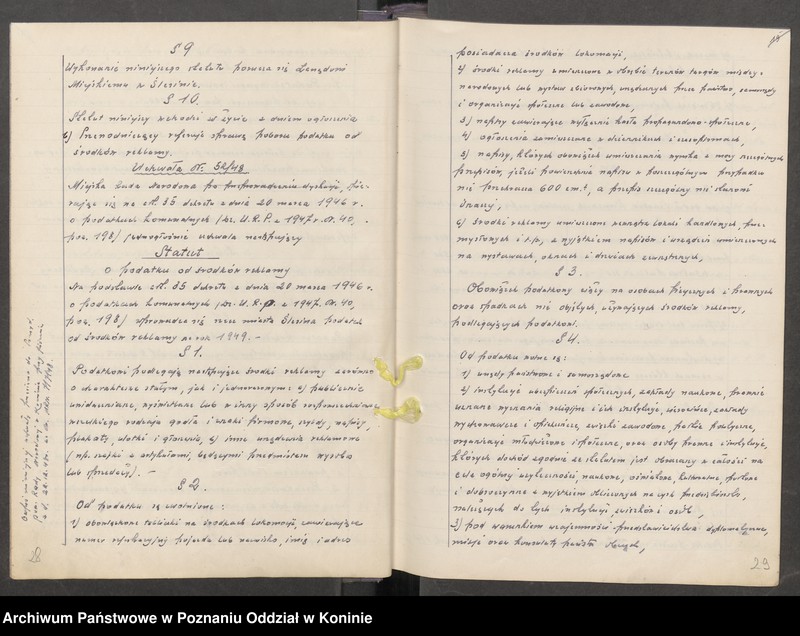 § 9
Wykonanie niniejszego statutu porucza się Zarządowi
Miejskiemu w Ślesinie.
§ 10.
Statut niniejszy wchodzi w życie z dniem ogłoszenia
6) Przewodniczący referuje sprawę poboru podatku od
środków reklamy.
Uchwała Nr. 52/48
Miejska Rada Narodowa po przeprowadzeniu dyskusji, opie-
rając się na art. 35 dekretu z dnia 20 marca 1946 r.
o podatkach komunalnych /Dz. U. R. P. z 1947 r. Nr. 40,
poz. 198/ jednogłośnie uchwala następujący
Statut
o podatku od środków reklamy
Na podstawie art. 35 dekretu z dnia 20 marca 1946 r.
o podatkach komunalnych /Dz. U. R. P. z 1947. Nr. 40,
poz. 198/ wprowadza się na rzecz miasta Ślesina podatek
od środków reklamy na rok 1949. -
§ 1.
Podatkowi podlegają następujące środki reklamy zarówno
o charakterze stałym, jak i jednorazowym: a) publicznie
uwidaczniane, wyświetlane lub w inny sposób rozpowszechniane
wszelkiego rodzaju godła i znaki firmowe, szyldy, napisy,
plakaty, ulotki i ogłoszenia, b) inne urządzenia reklamowe
(np. szafki z artykułami, będącymi przedmiotem wyrobu
lub sprzedaży). -
§ 2.
Od podatku są zwolnione:
1) obowiązkowe tabliczki na środkach lokomocji, zawierające
numer rejestracyjny pojazdu lub nazwisko, imię i adres
28
posiadacza środków lokomocji,
2) środki reklamy umieszczone w obrębie terenów targów między-
narodowych lub wystaw zbiorowych, urządzanych przez państwo, samorządy
i organizacje społeczne lub zawodowe,
3) napisy zawierające wyłącznie hasła propagandowo-społeczne,
4) ogłoszenia zamieszczane w dziennikach i czasopismach,
5) napisy, których obowiązek umieszczania wynika z mocy szczególnych
przepisów, jeżeli powierzchnia napisu w poszczególnym przypadku
nie przekracza 600 cm², a przepis szczególny nie stanowi
inaczej,
6) środki reklamy umieszczone wewnątrz lokali handlowych, prze-
mysłowych i t.p., z wyjątkiem napisów i urządzeń umieszczonych
na wystawach, oknach i drzwiach zewnętrznych,
§ 3.
Obowiązek podatkowy ciąży na osobach fizycznych i prawnych
oraz spadkach nie objętych, używających środków reklamy,
podlegających podatkowi.
§ 4.
Od podatku wolne są:
1) urzędy państwowe i samorządowe
2) instytucje ubezpieczeń społecznych, zakłady naukowe, prawnie
uznane wyznania religijne i ich instytucje, uczelnie, zakłady
wychowawcze i opiekuńcze, związki zawodowe, partie polityczne,
organizacje młodzieżowe i społeczne, oraz osoby prawne i instytucje,
których dochód zgodnie ze statutem jest obracany w całości na
cele ogólnej użyteczności, naukowe, oświatowe, kulturalne, sportowe
i dobroczynne z wyjątkiem obliczonych na zysk przedsiębiorstw,
należących do tych instytucji, związków i osób,
3) pod warunkiem wzajemności przedstawicielstwa dyplomatyczne,
misje oraz konsulaty państw obcych,
29
Archiwum Państwowe w Poznaniu Oddział w Koninie